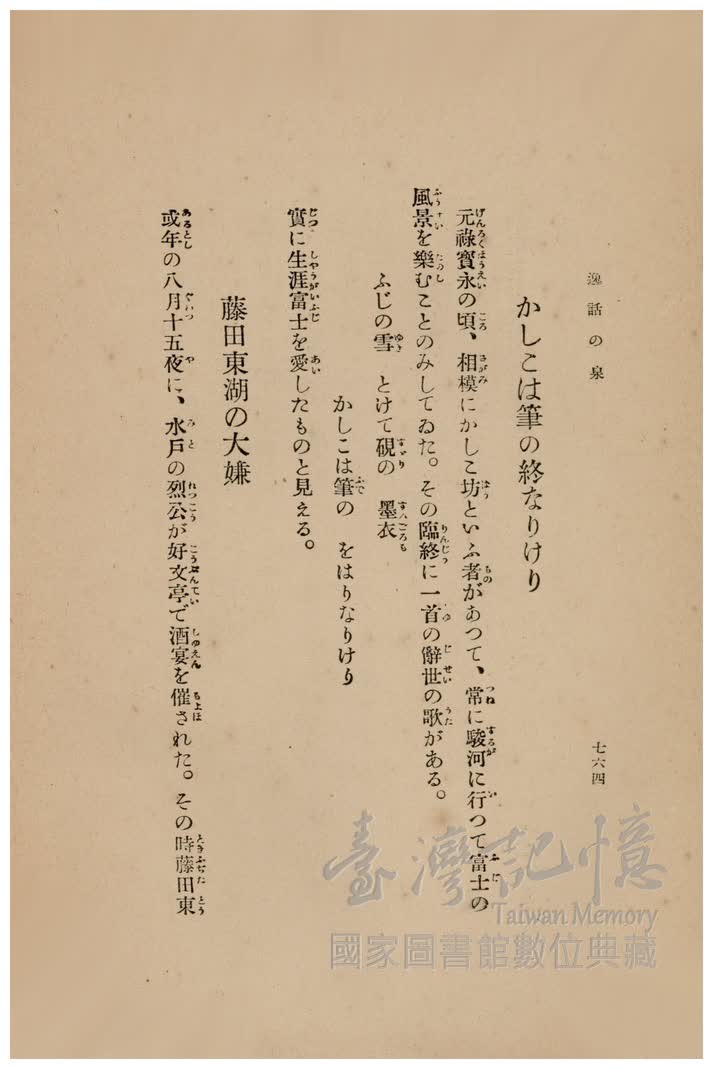 逸話の泉
七六四
かしこは筆の終なりけり
元祿寳永の頃、相模にかしこ坊といふ者があつて、常に駿河に行つて富士の
風景を樂むことのみしてゐた。その臨終に一首の辭世の歌がある。
ふじの雪　とけて硯の　墨衣
かしこは筆の　をはりなりけり
實に生涯富士を愛したものと見える。
藤田東湖の大嫌
或年の八月十五夜に、水戸の烈公が好文亭で酒宴を催された。その時藤田東
臺灣記憶
Taiwan Memory
國家圖書館數位典藏